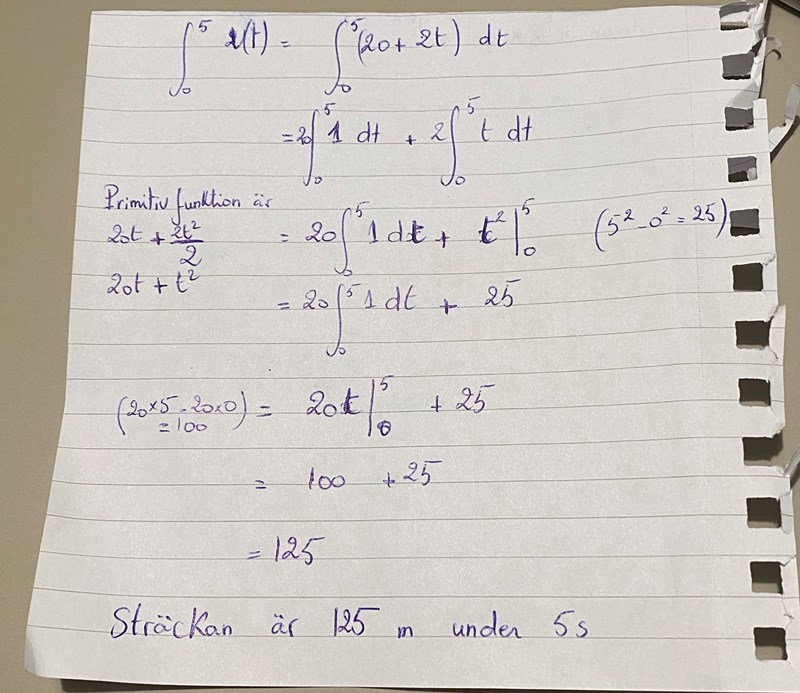 ∫₀⁵ v(t) = ∫₀⁵ (20 + 2t) dt
= 20 ∫₀⁵ 1 dt + 2 ∫₀⁵ t dt
Primitiv funktion är
20t + 2t²/2 = 20 ∫₀⁵ 1 dt + t² |₀⁵ (5² - 0² = 25)
20t + t²
= 20 ∫₀⁵ 1 dt + 25
(20×5 - 20×0) = 20t |₀⁵ + 25
= 100
= 100 + 25
= 125
Sträckan är 125 m under 5s